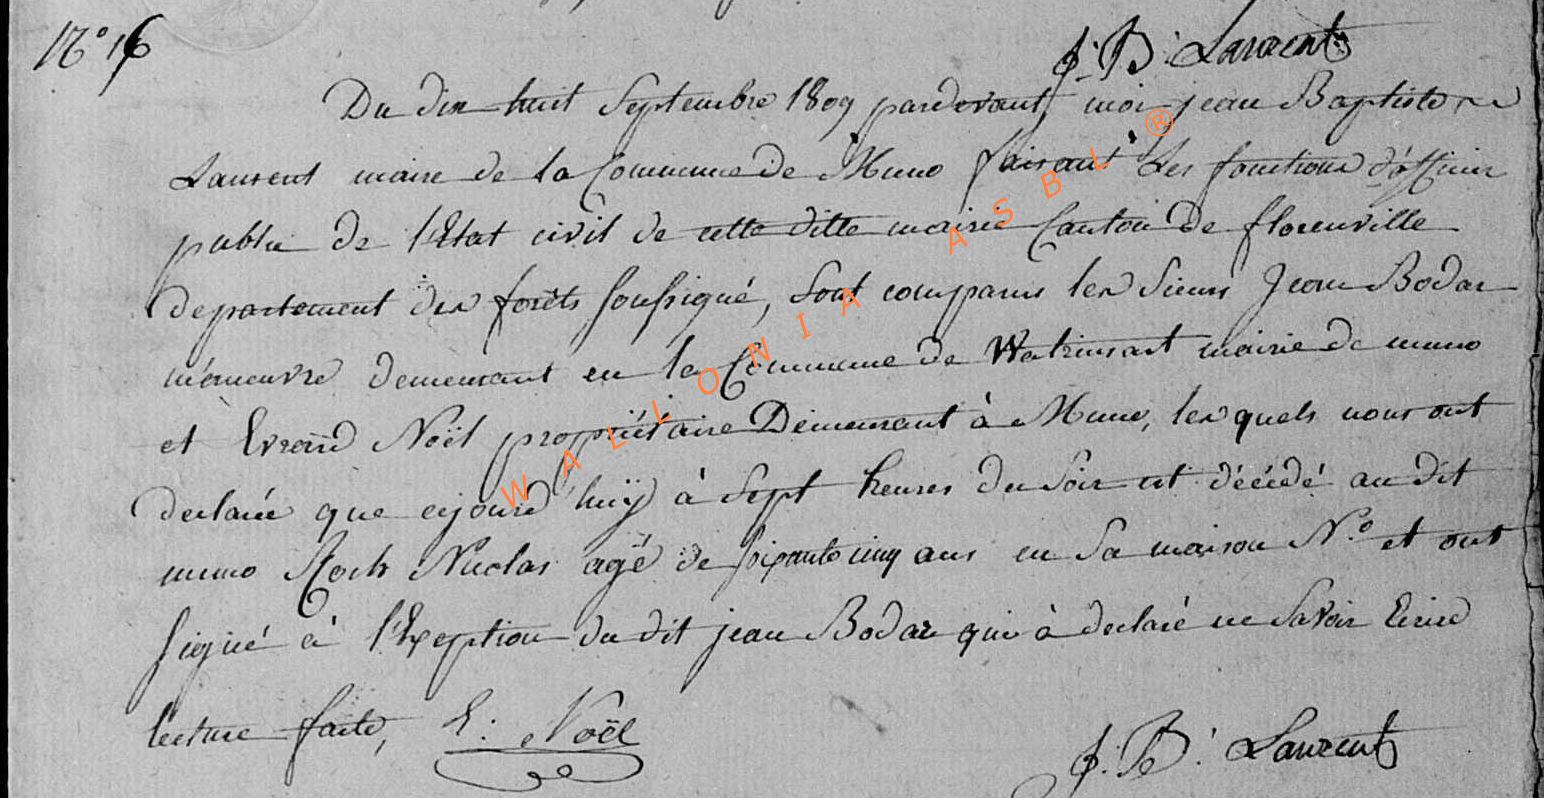 J: B: Laurent
N.° 16
Du dix huit Septembre 1809 pardevant moi jean Baptiste
Laurent maire de la Commune de Muno faisant les fonctions d'officier
public de l'Etat civil de cette ditte mairie Canton de florenville
departement des forêts soussigné, sont comparus les Sieurs Jean Bodar
mâneuvre demeurant en la Commune de Watrinsart mairie de muno
et Evrard Noël propriétaire Demeurant à Muno, les quels nous ont
declaré que cejourd'huÿ à Sept heures du Soir est décédé au dit
muno Roch Nicolas agé de soixante cinq ans en sa maison N.° et ont
signé à l'Exeption du dit jean Bodar qui à declaré ne Savoir Ecrire
lecture faite, E: Noël
J: B: Laurent
WALLONIA ASBL ®